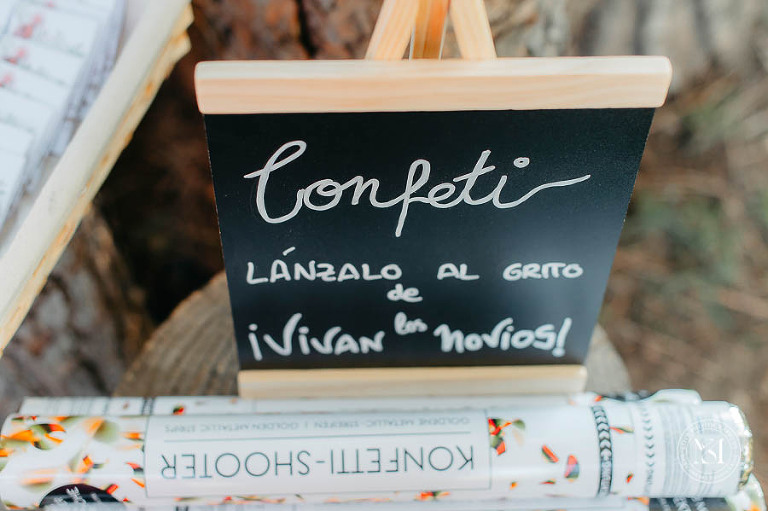 Confeti
LÁNZALO AL GRITO
de
¡VIVAN los NOVIOS!
GOLDENE METALLIC-STREIFEN | GOLDEN METALLIC STRIPS
KONFETTI-SHOOTER